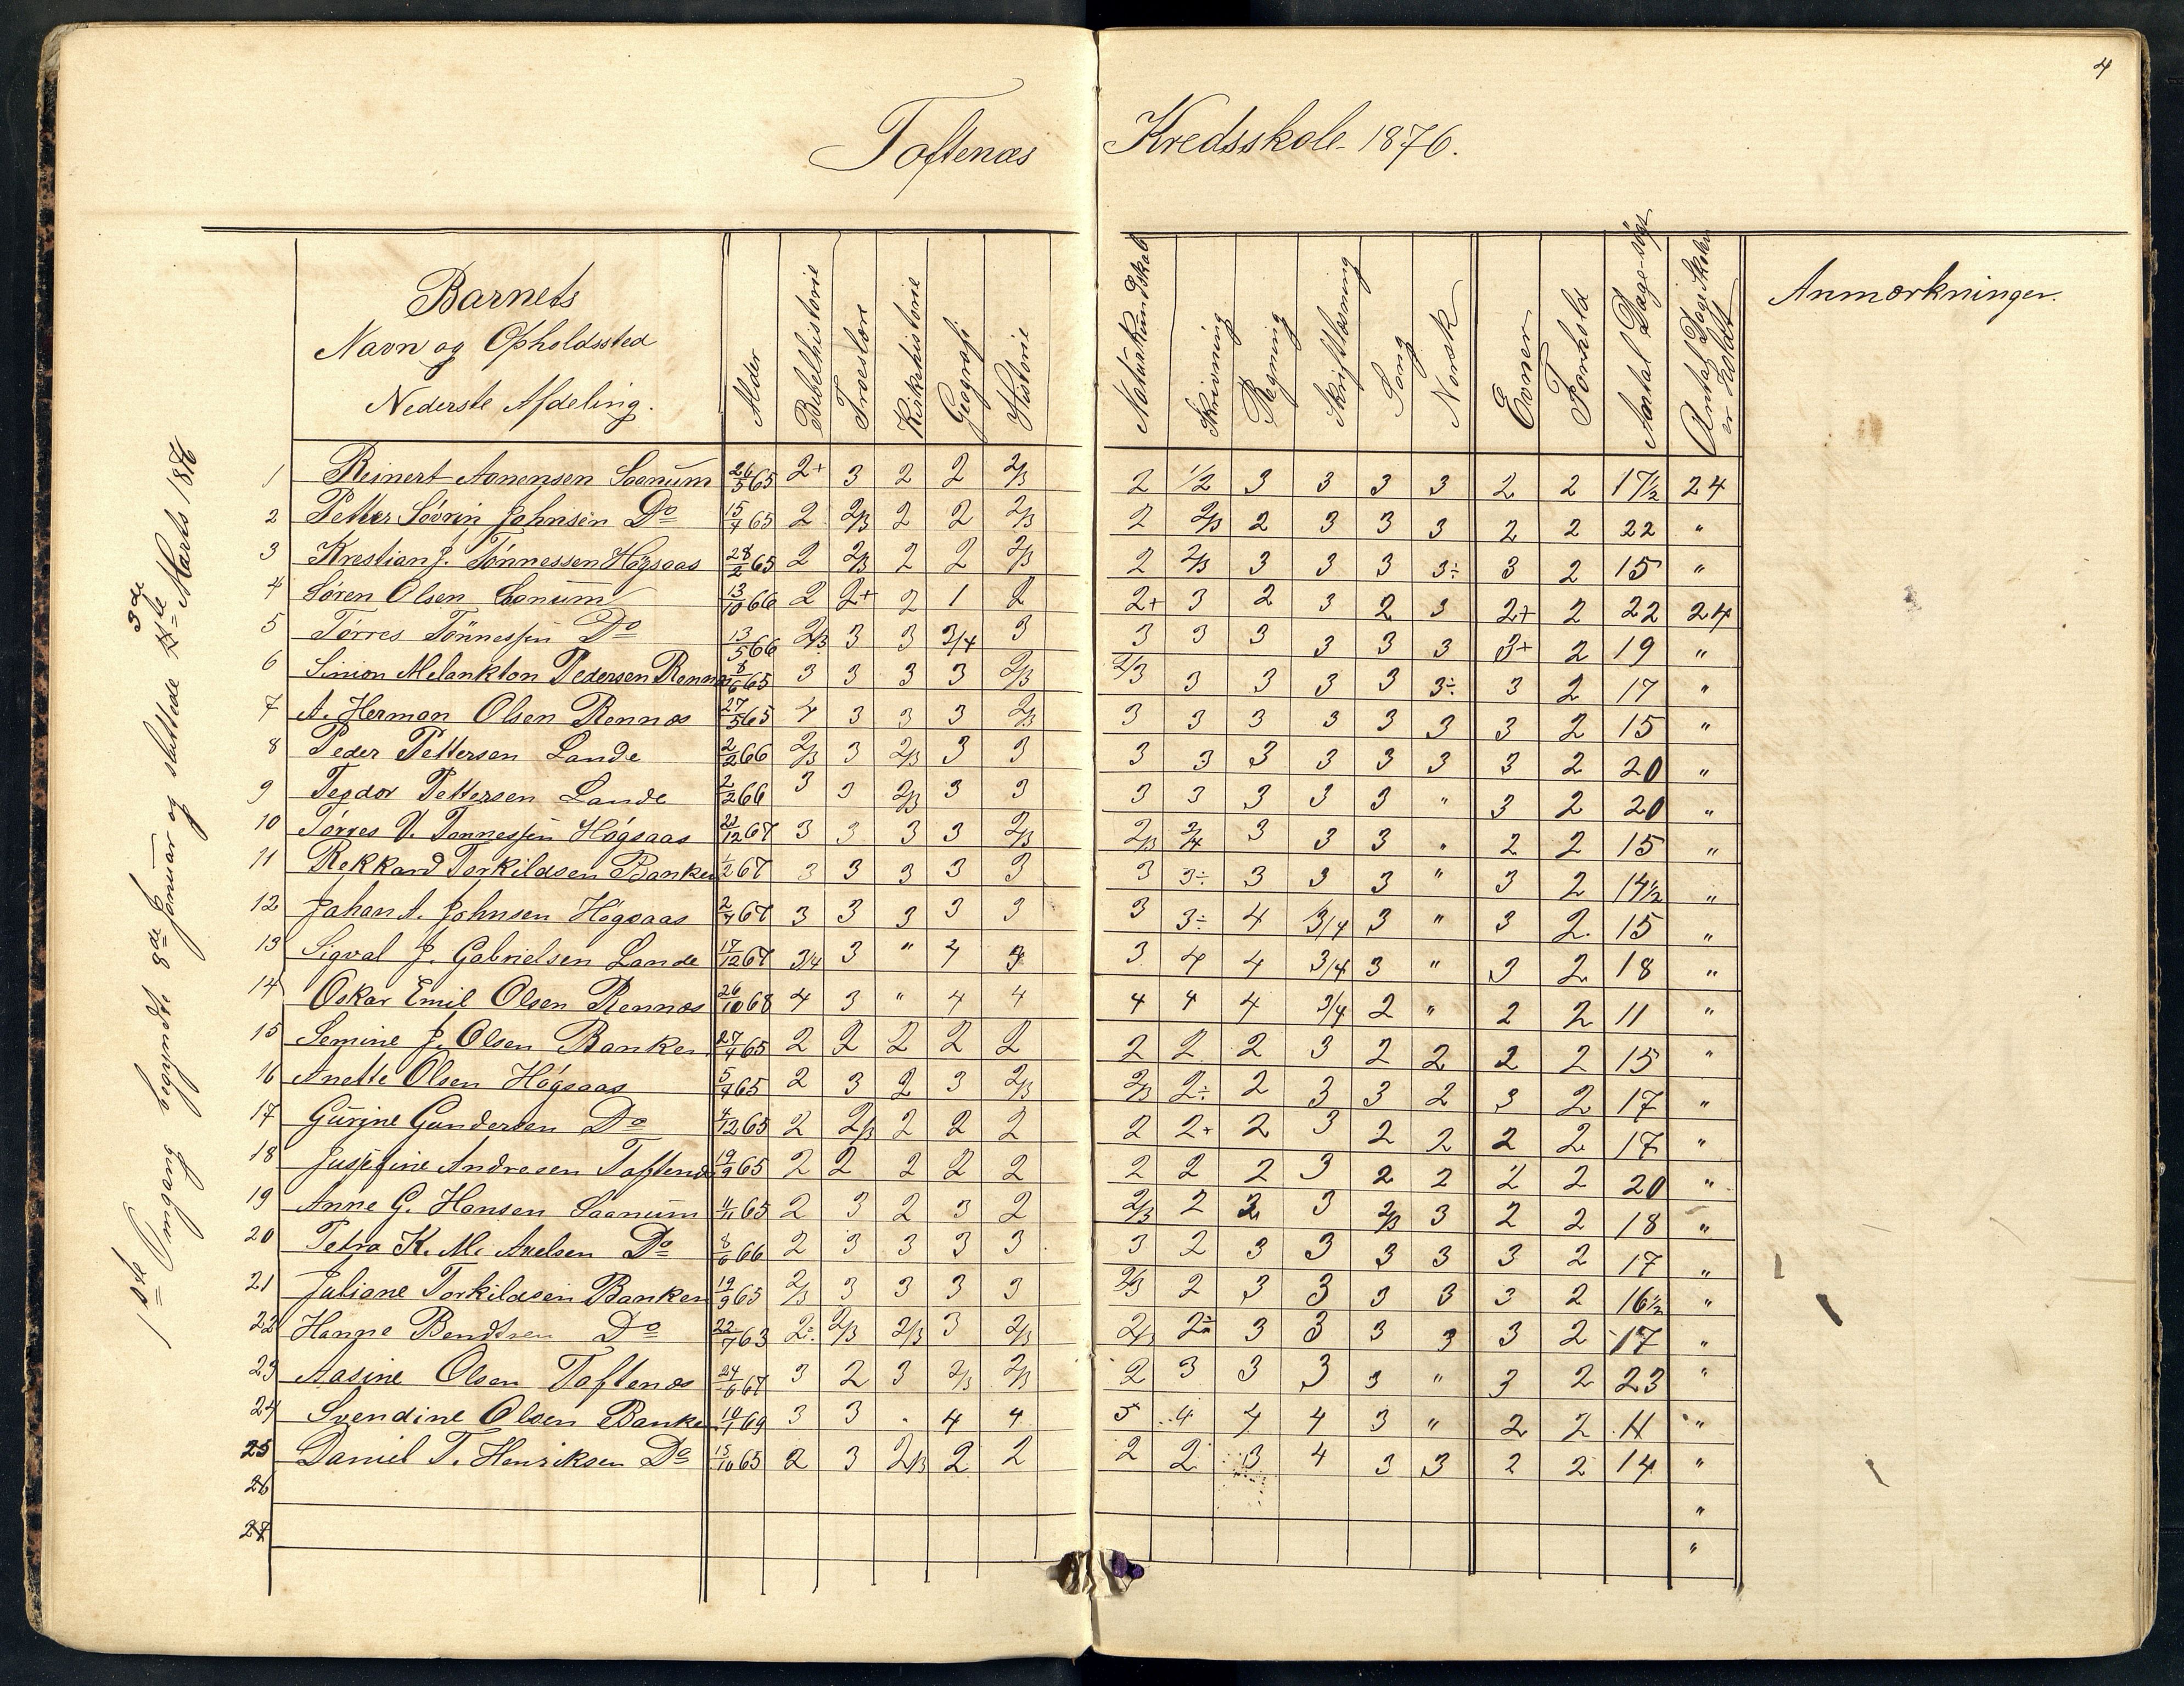 4
Toftenæs Kredsskole 1876.
1ste Omgang begyndte 8de Januar og sluttede 3de Marts 1876
Barnets
Navn og Opholdssted
Nederste Afdeling.
Alder Bibelhistorie Troeslære Kirkehistorie Geografi Historie Naturkundskab Skrivning Regning Skriftlæsning Sang Norsk Evner Forhold Antal Dage søgt Antal Dage Skolen er holdt Anmærkninger.
1 Reinert Aanensen Saanum 26/5 65 2+ 3 2 2 2/3 2 1/2 3 3 3 3 2 2 17½ 24
2 Petter Sövrin Johnsen Do 15/4 65 2 2/3 2 2 2/3 2 2/3 2 3 3 3 2 2 22 "
3 Krestian J. Tönnessen Högsaas 28/2 65 2 2/3 2 2 2/3 2 2/3 3 3 3 3÷ 3 2 15 "
4 Sören Olsen Saanum 13/10 66 2 2+ 2 1 2 2+ 3 2 3 2 3 2+ 2 22 24
5 Törres Tönnessen Do 13/5 66 2/3 3 3 3/4 3 3 3 3 3 3 3 3+ 2 19 "
6 Simon Melankton Pedersen Rennæs 8/6 65 3 3 3 3 2/3 2/3 3 3 3 3 3÷ 3 2 17 "
7 A. Herman Olsen Rennæs 27/5 65 4 3 3 3 2/3 3 3 3 3 3 3 3 2 15 "
8 Peder Pettersen Lande 2/2 66 2/3 3 2/3 3 3 3 3 3 3 3 3 3 2 20 "
9 Teodor Pettersen Lande 2/2 66 3 3 2/3 3 3 3 3 3 3 3 " 3 2 20 "
10 Törres V. Tönnessen Högsaas 21/12 67 3 3 3 3 2/3 2/3 3/4 3 3 3 " 2 2 15 "
11 Rekkard Torkildsen Banken 1/2 67 3 3 3 3 3 3 3÷ 3 3 3 " 3 2 14½ "
12 Johan A. Johnsen Högsaas 2/4 67 3 3 3 3 3 3 3÷ 4 3/4 3 " 3 2. 15 "
13 Sigval J. Gabrielsen Lande 17/12 67 3/4 3 " 4 3 4 4 3/4 3 " 3 2 18 "
14 Oskar Emil Olsen Rennæs 26/10 68 4 3 " 4 4 4 4 4 3/4 2 " 2 2 11 "
15 Semine J. Olsen Banken 27/4 65 2 2 2 2 2 2 2 2 3 2 2 2 2 15 "
16 Anette Olsen Högsaas 5/9 65 2 3 2 3 2/3 2/3 2÷ 2 3 3 2 3 2 17 "
17 Gurine Gundersen Do 4/12 65 2 2/3 2 2 2 2 2+ 2 3 2 2 2 2 17 "
18 Jusefine Andresen Toftenæs 19/9 65 2 2 2 2 2 2 2 2 3 2 2 2 2 20 "
19 Anne G. Hansen Saanum 4/11 65 2 3 2 3 2 2/3 2 3 2/3 3 2 2 18 "
20 Petra K. M. Axelsen Do 8/6 66 2 3 3 3 3 3 2 3 3 3 3 3 2 17 "
21 Juliane Torkildsen Banken 19/9 65 2/3 3 3 3 3 2/3 2 3 3 3 3 3 2 16½ "
22 Hanne Bendtsen Do 22/7 63 2÷ 2/3 2/3 3 2/3 2/3 2÷ 3 3 3 3 3 2 17 "
23 Aasine Olsen Toftenæs 24/6 67 3 2 3 2/3 2/3 2 3 3 3 3 " 3 2 23 "
24 Svendine Olsen Banken 10/1 69 3 3 . 4 4 5 4 4 4 3 " 2 2 11 "
25 Daniel T. Henriksen Do 15/10 65 2 3 2/3 2 2 2 2 3 4 3 3 2 2 14 "
26 "
27 "